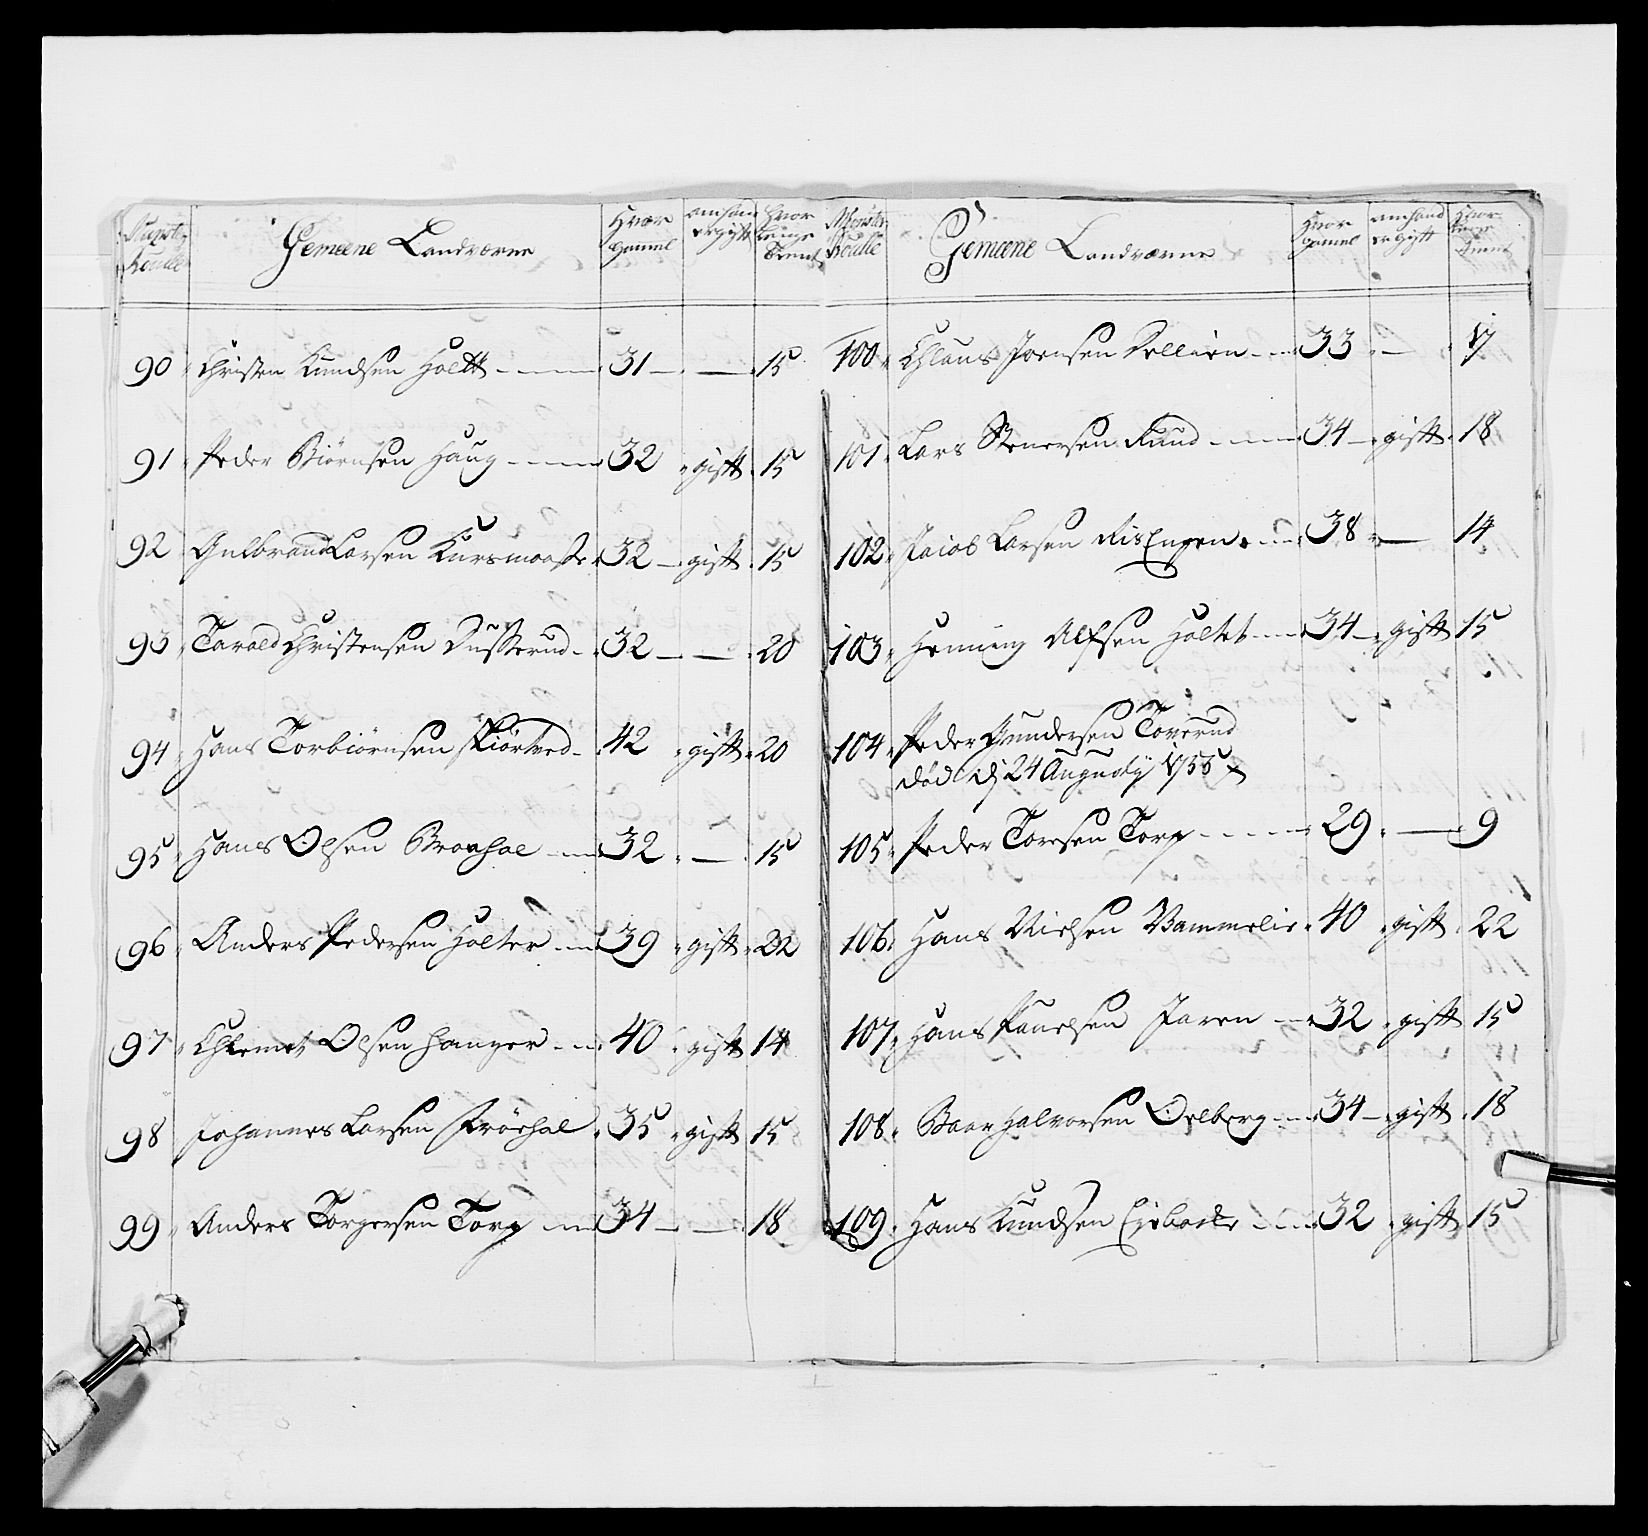 Mynster Roulle
Gemeene Landværne
Hvor gammel
om hand er gift
hvor lenge tient
90 Christen Knudsen Holtt 31 — 15
91 Peder Biörnsen Haug 32 gift 15
92 Gulbrand Larsen Kursmoase 32 gift 15
93 Tarald Christensen Dusserud 32 — 20
94 Hans Torbiörnsen Skiörtved 42 gift 20
95 Hans Olsen Braahol 32 — 15
96 Anders Pedersen Holter 39 gift 22
97 Chlemet Olsen Hanger 40 gift 14
98 Johannes Larsen Fröshol 35 gift 15
99 Anders Torgersen Torp 34 — 18
Mynster Roulle
Gemeene Landværne
Hvor gammel
om hand er gift
Hvor lenge tient
100 Chlaus Joensen Dellien 33 — 17
101 Lars Stenersen Ruud 34 gift 18
102 Jacob Larsen RisEngen 38 — 14
103 Henning Alfsen Holtet 34 gift 15
104 Peder Gundersen Toverud
död dj 24 Augusty 1755
105 Peder Toresen Torp 29 — 9
106 Hans Nielsen Vammelie 40 gift 22
107 Hans Pauelsen Jaren 32 gift 15
108 Baar Halvorsen Oelberg 34 gift 18
109 Hans Knudsen Egebacke 32 gift 15